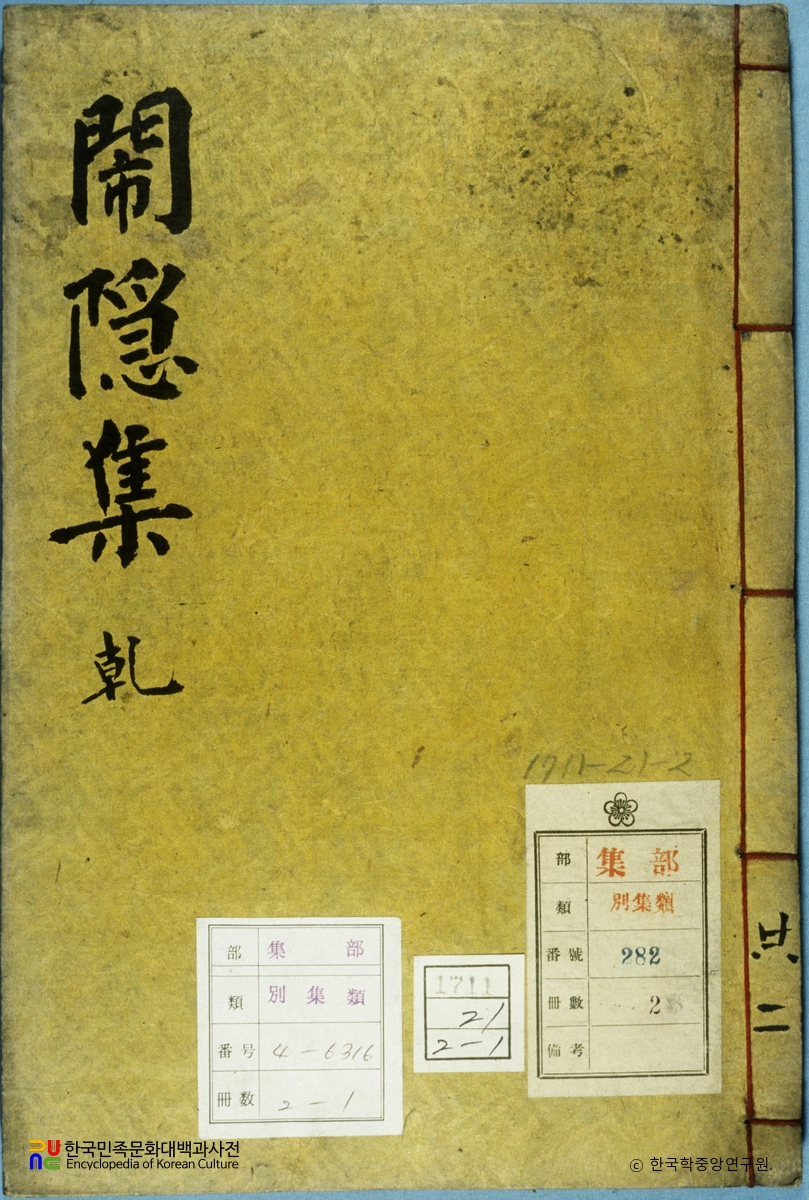 鬧隠集 乾
共二
1711-21-2
部 集部
類 別集類
番號 282
冊數 2
備考
部 集部
類 別集類
番号 4-6316
冊数 2-1
1711
21
2-1
한국민족문화대백과사전
Encyclopedia of Korean Culture
© 한국학중앙연구원.